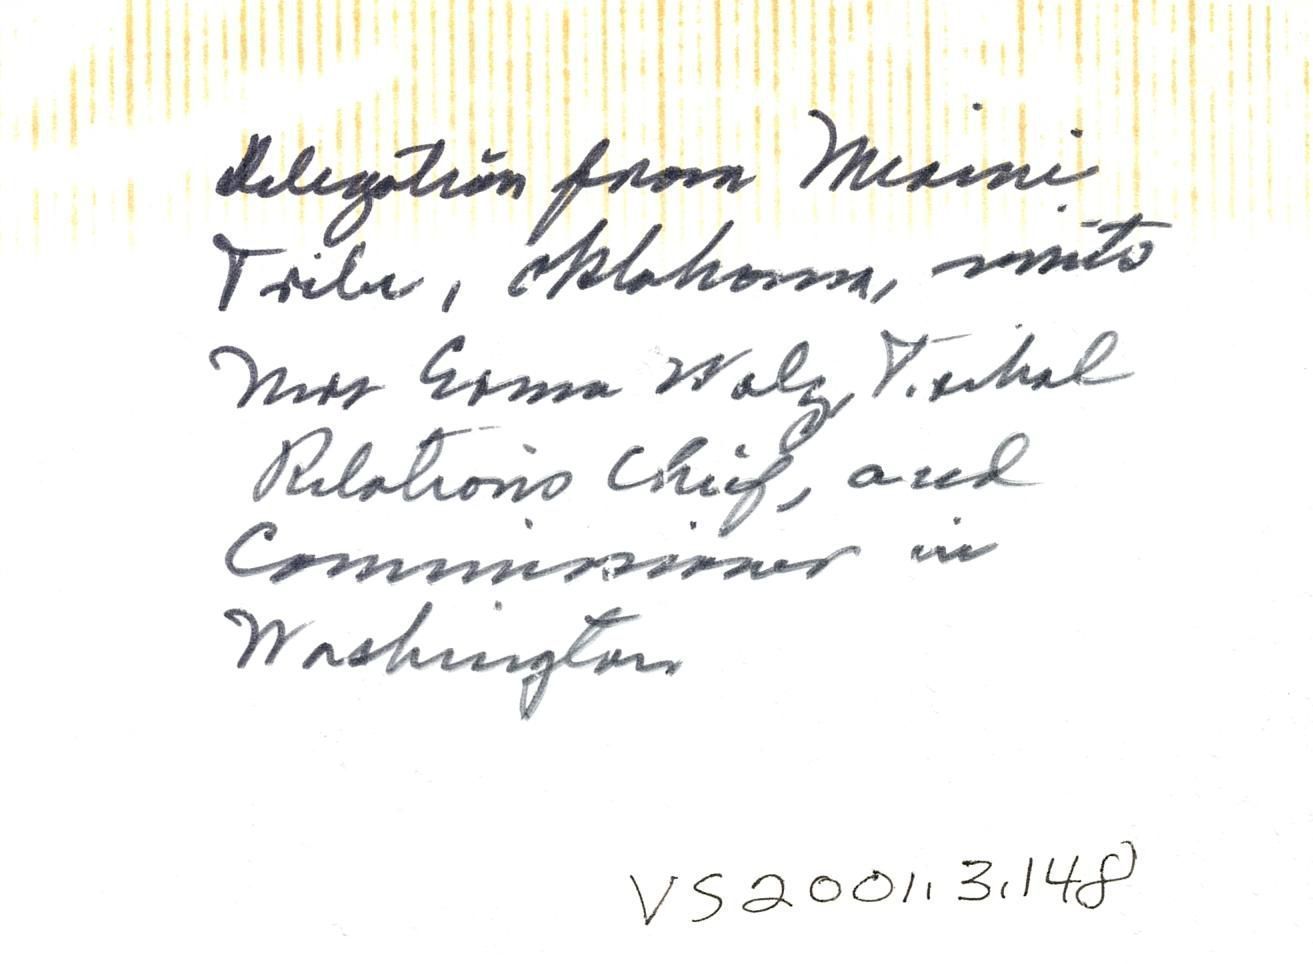 Delegation from Miami
Tribe, Oklahoma, visits
Mrs Erma Walz, Tribal
Relations Chief, and
Commissioner in
Washington
VS2001.3.148